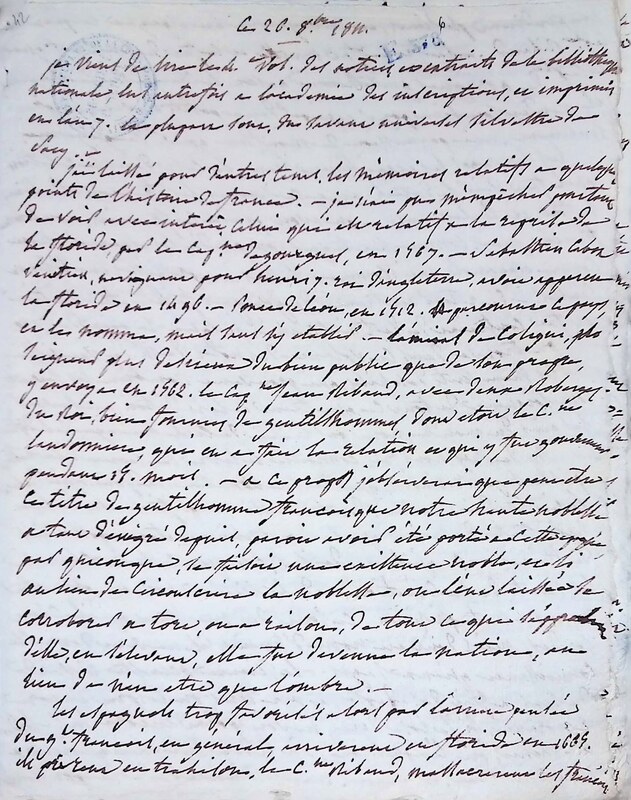 ce 26. 8bre 1811.
6
je viens de lire le 4e Vol. des notices et extraits de la bibliothèque
nationale, lus autrefois à l'académie des inscriptions, et imprimés
en l'an 7. la plupart sont du savant universel Silvestre de
Sacy.
j'ai laissé pour d'autres tems, les mémoires relatifs a quelques
points de l'histoire de france. — je n'ai pu m'empêcher pourtant
de voir avec intérêt celui qui est relatif a la reprise de
la floride, par le Cap.ne de gourgues, en 1567. — Sébastien Cabot
vénitien, naviguant pour henri 7. roi d'angleterre, avoit apperçu
la floride en 1496. — Ponce de Léon, en 1512. parcourut ce pays
et le nomma, mais sans s'y établir. — l'amiral de Coligni, plus
soigneux plus désireux du bien public que de son propre,
y envoya en 1562. le Cap.ne Jean Ribaud, avec deux Roberges
du Roi, bien fournies de gentilhommes, dont etoit le C.ne
laudonniere, qui en a fait la relation et qui y fut gouverneur
pendant mois. — a ce propos j'observerai que peut être
ce titre de gentilhomme françois que notre haute noblesse
a tant dénigré depuis, pouvoit avoir été porté a cette époque
par quiconque, se faisoit une existence noble, et si
au lieu de circonscrire la noblesse, on l'eut laissée se
corroborer a tort, ou a raison, de tout ce qui s'approchoit
d'elle, en s'élevant, elle fut devenue la nation, au
lieu de n'en etre que l'ombre. —
les espagnols trop favorisés alors par l'arriere pensée
du g.t françois, en général, arriverent en floride en 1565.
ils prirent en trahison, le C.ne Ribaud, massacrerent les françois